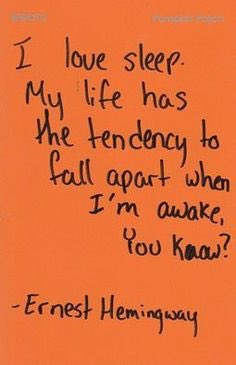 Pumpkin Patch
I love sleep.
My life has
the tendency to
fall apart when
I'm awake,
You Know?
-Ernest Hemingway